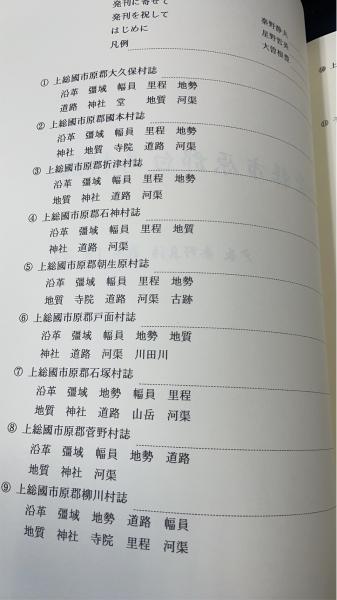 発刊に寄せて
発刊を祝して 秦野静夫
はじめに 星野哲英
凡例 大曽根豊
① 上総國市原郡大久保村誌
沿革 彊域 幅員 里程 地勢
道路 神社 堂 地質 河渠
② 上総國市原郡國本村誌
沿革 彊域 幅員 里程 地勢
神社 地質 寺院 道路 河渠
③ 上総國市原郡折津村誌
沿革 彊域 幅員 里程 地勢
地質 神社 道路 河渠
④ 上総國市原郡石神村誌
沿革 彊域 幅員 里程 地質
神社 道路 河渠
⑤ 上総國市原郡朝生原村誌
沿革 彊域 幅員 里程 地勢
地質 寺院 道路 河渠 古跡
⑥ 上総國市原郡戸面村誌
沿革 彊域 幅員 地勢 地質
神社 道路 河渠 川田川
⑦ 上総國市原郡石塚村誌
沿革 彊域 地勢 幅員 里程
地質 神社 道路 山岳 河渠
⑧ 上総國市原郡菅野村誌
沿革 彊域 幅員 地勢 道路
地質 神社 河渠
⑨ 上総國市原郡柳川村誌
沿革 彊域 地勢 道路 幅員
地質 神社 寺院 里程 河渠